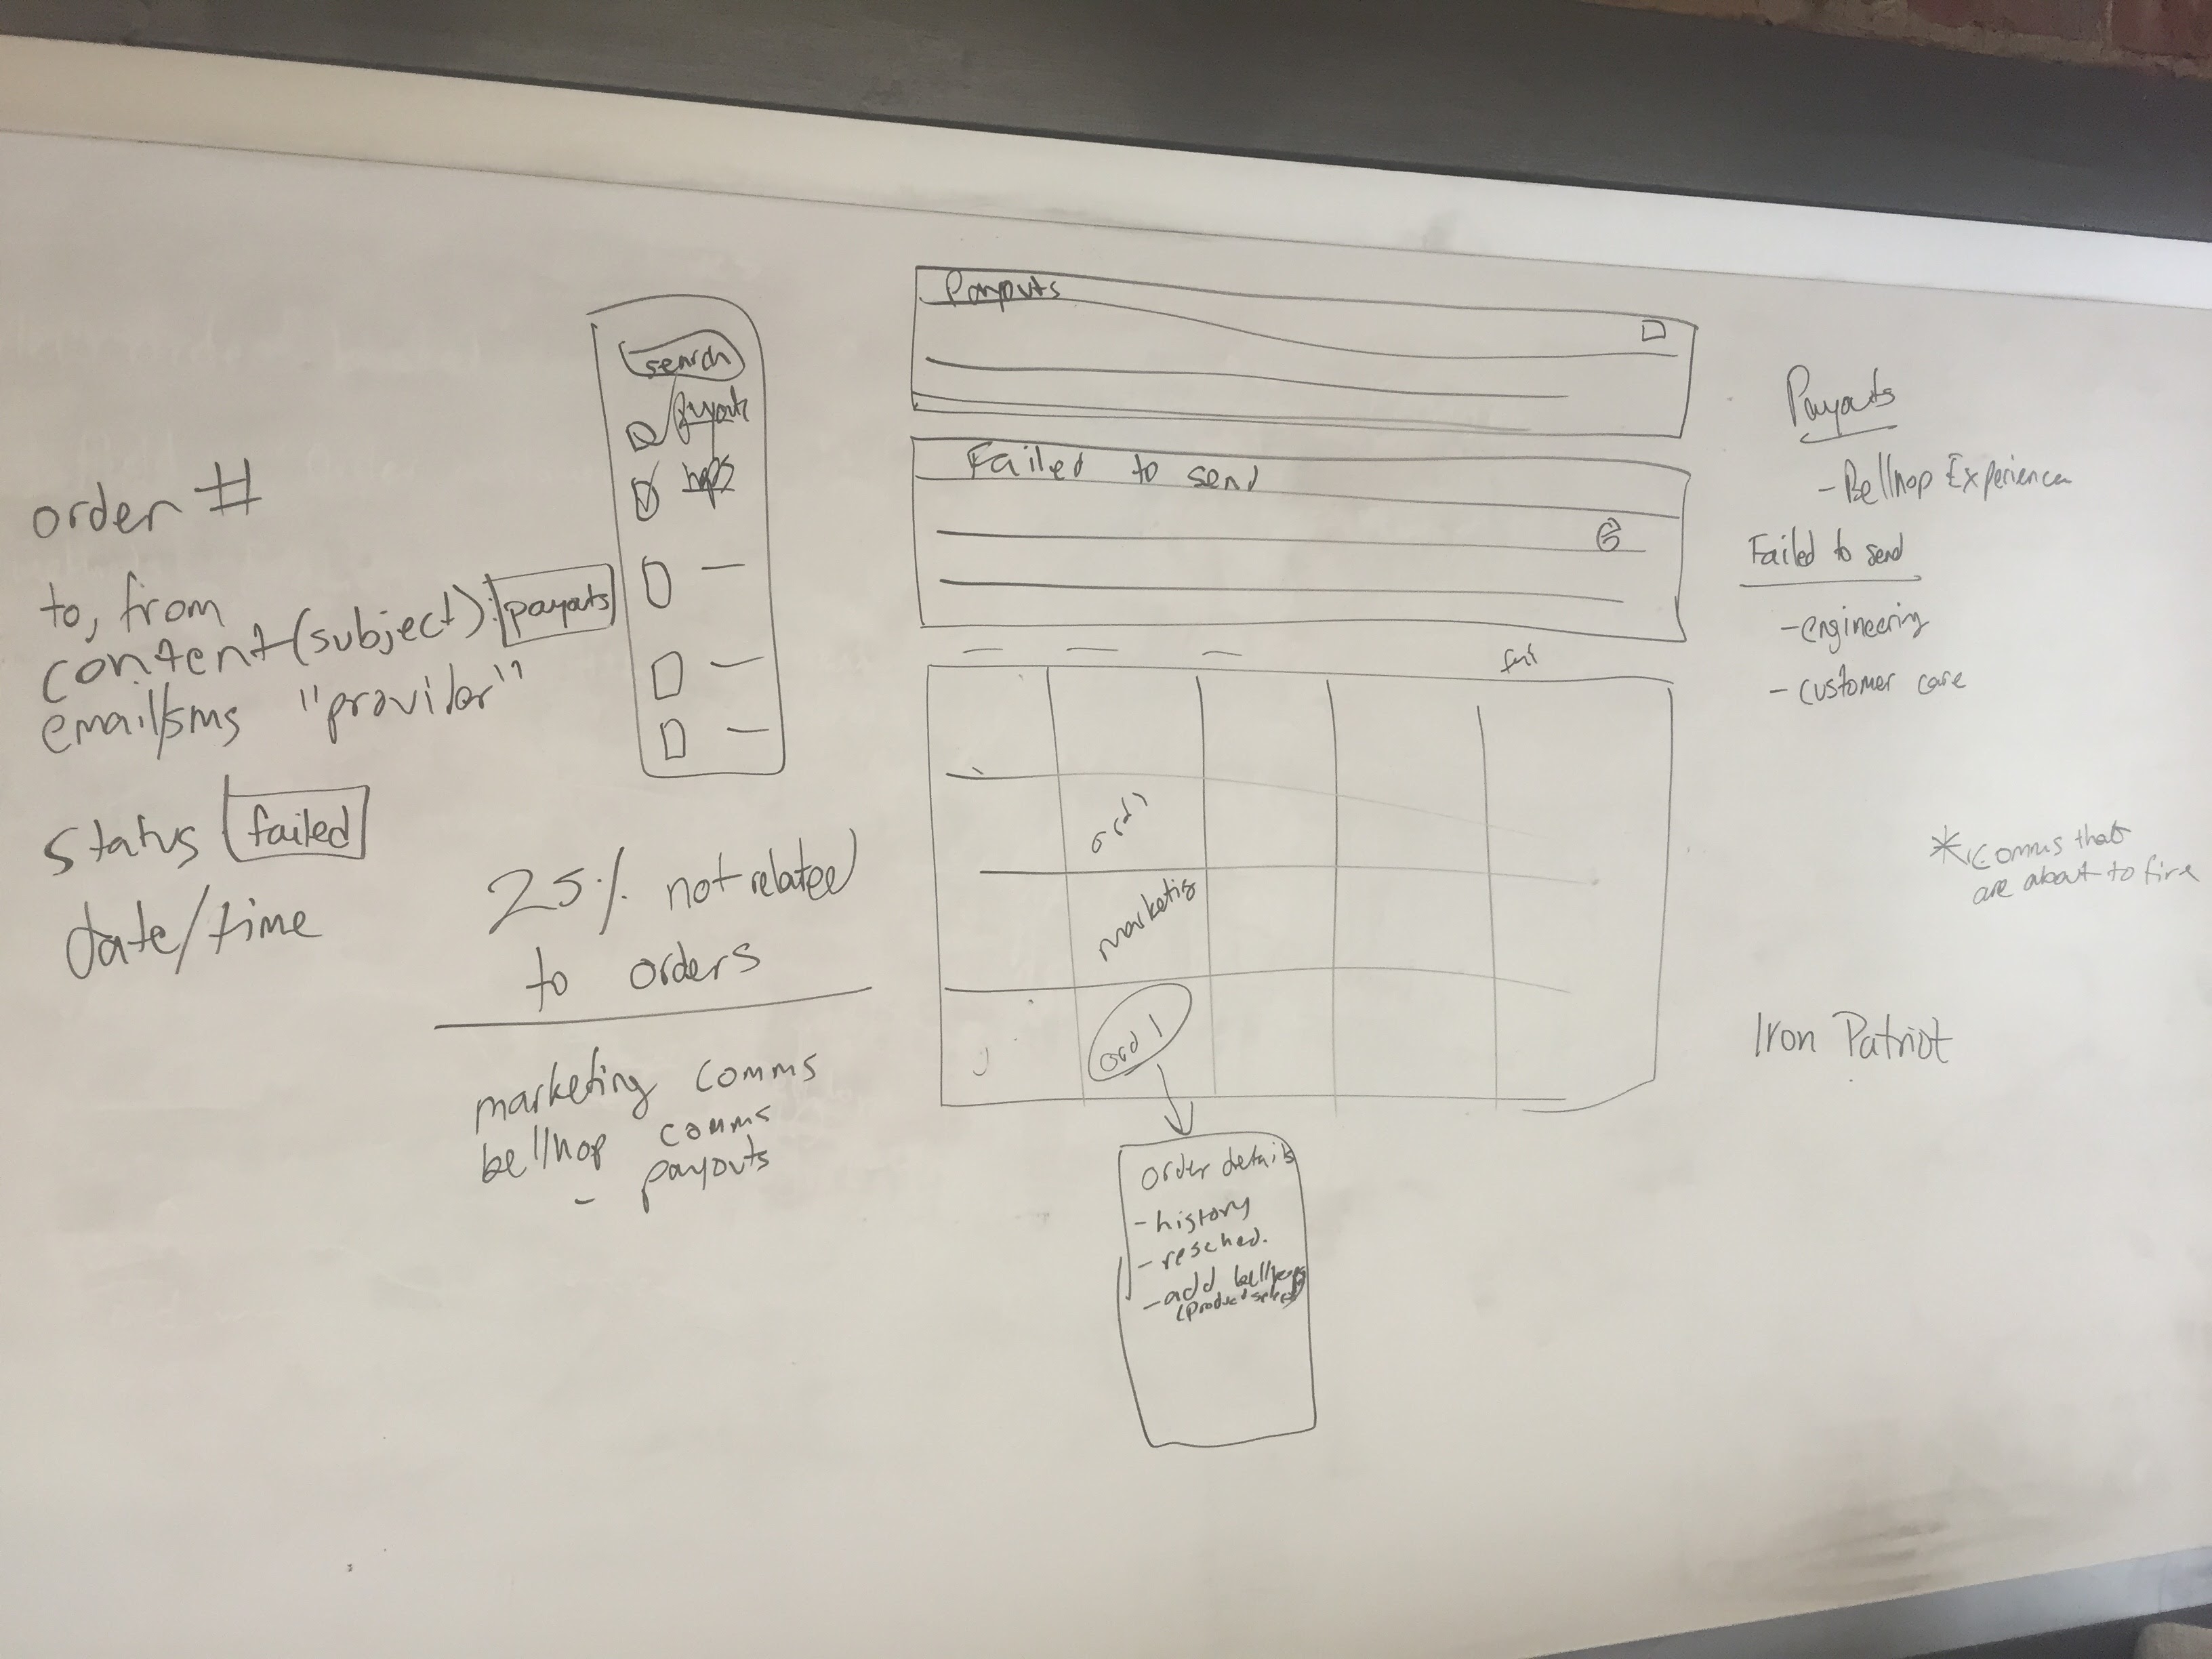 order #
to, from
content (subject): payouts
email/sms "provider"
status failed
date/time
search
payouts
hops
25% not related
to orders
marketing comms
bellhop comms
- payouts
Payouts
Failed to send
ord 1
order details
- history
- resched.
- add bellhops
(product select)
Payouts
- Bellhop Experience
Failed to send
- engineering
- customer care
* comms that
are about to fire
Iron Patriot